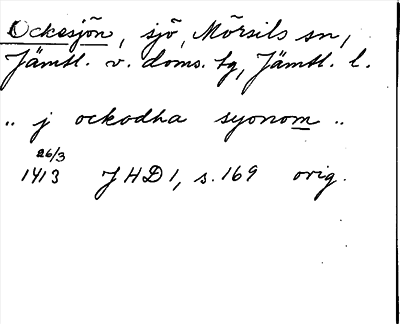 Ockesjön, sjö, Mörsils sn,
Jämtl. v. doms. tg, Jämtl. l.
.. j ockodha syonom ..
26/3
1413 JHD 1, s. 169 orig.